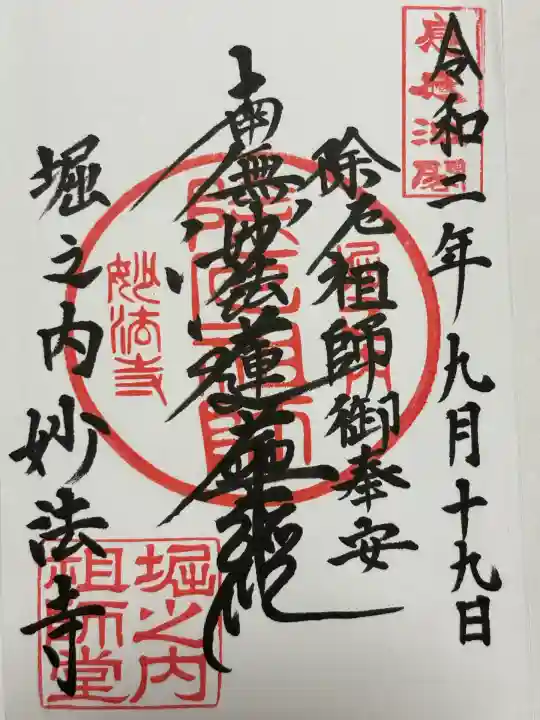 令和二年九月十九日
除厄祖師御奉安
南無妙法蓮華経
堀之内妙法寺
除厄祖師
妙法寺
堀之内
祖師堂